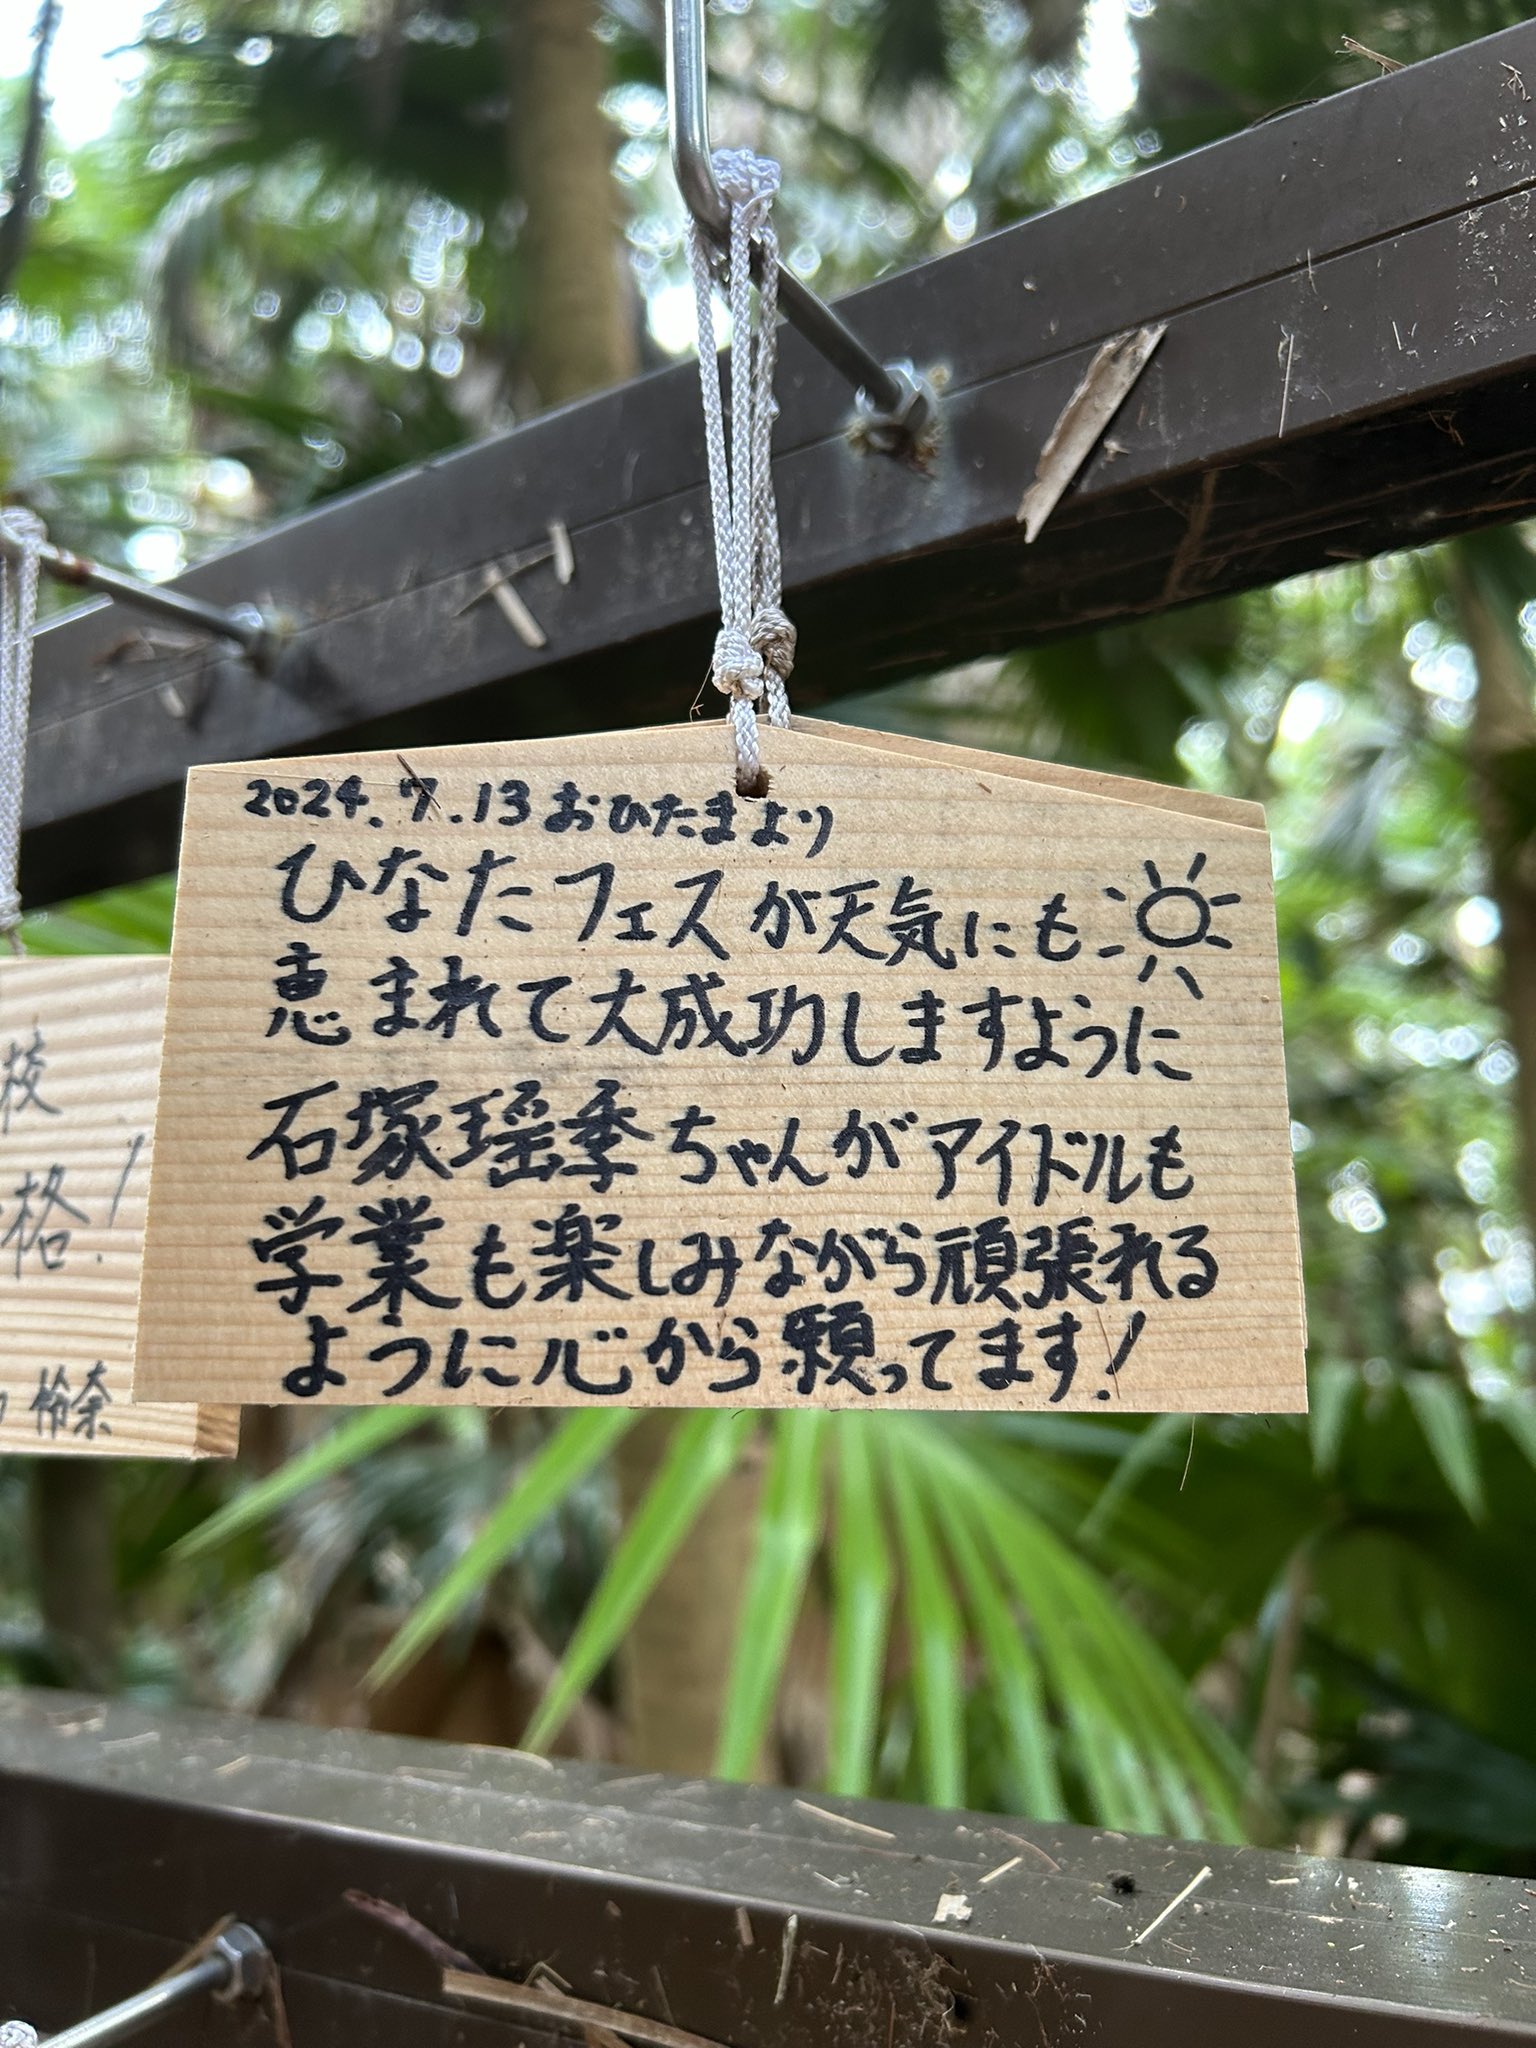 2024.7.13 おひたまより
ひなたフェスが天気にも
恵まれて大成功しますように
石塚瑶季ちゃんがアイドルも
学業も楽しみながら頑張れる
ように心から願ってます!
校
格!
怜奈